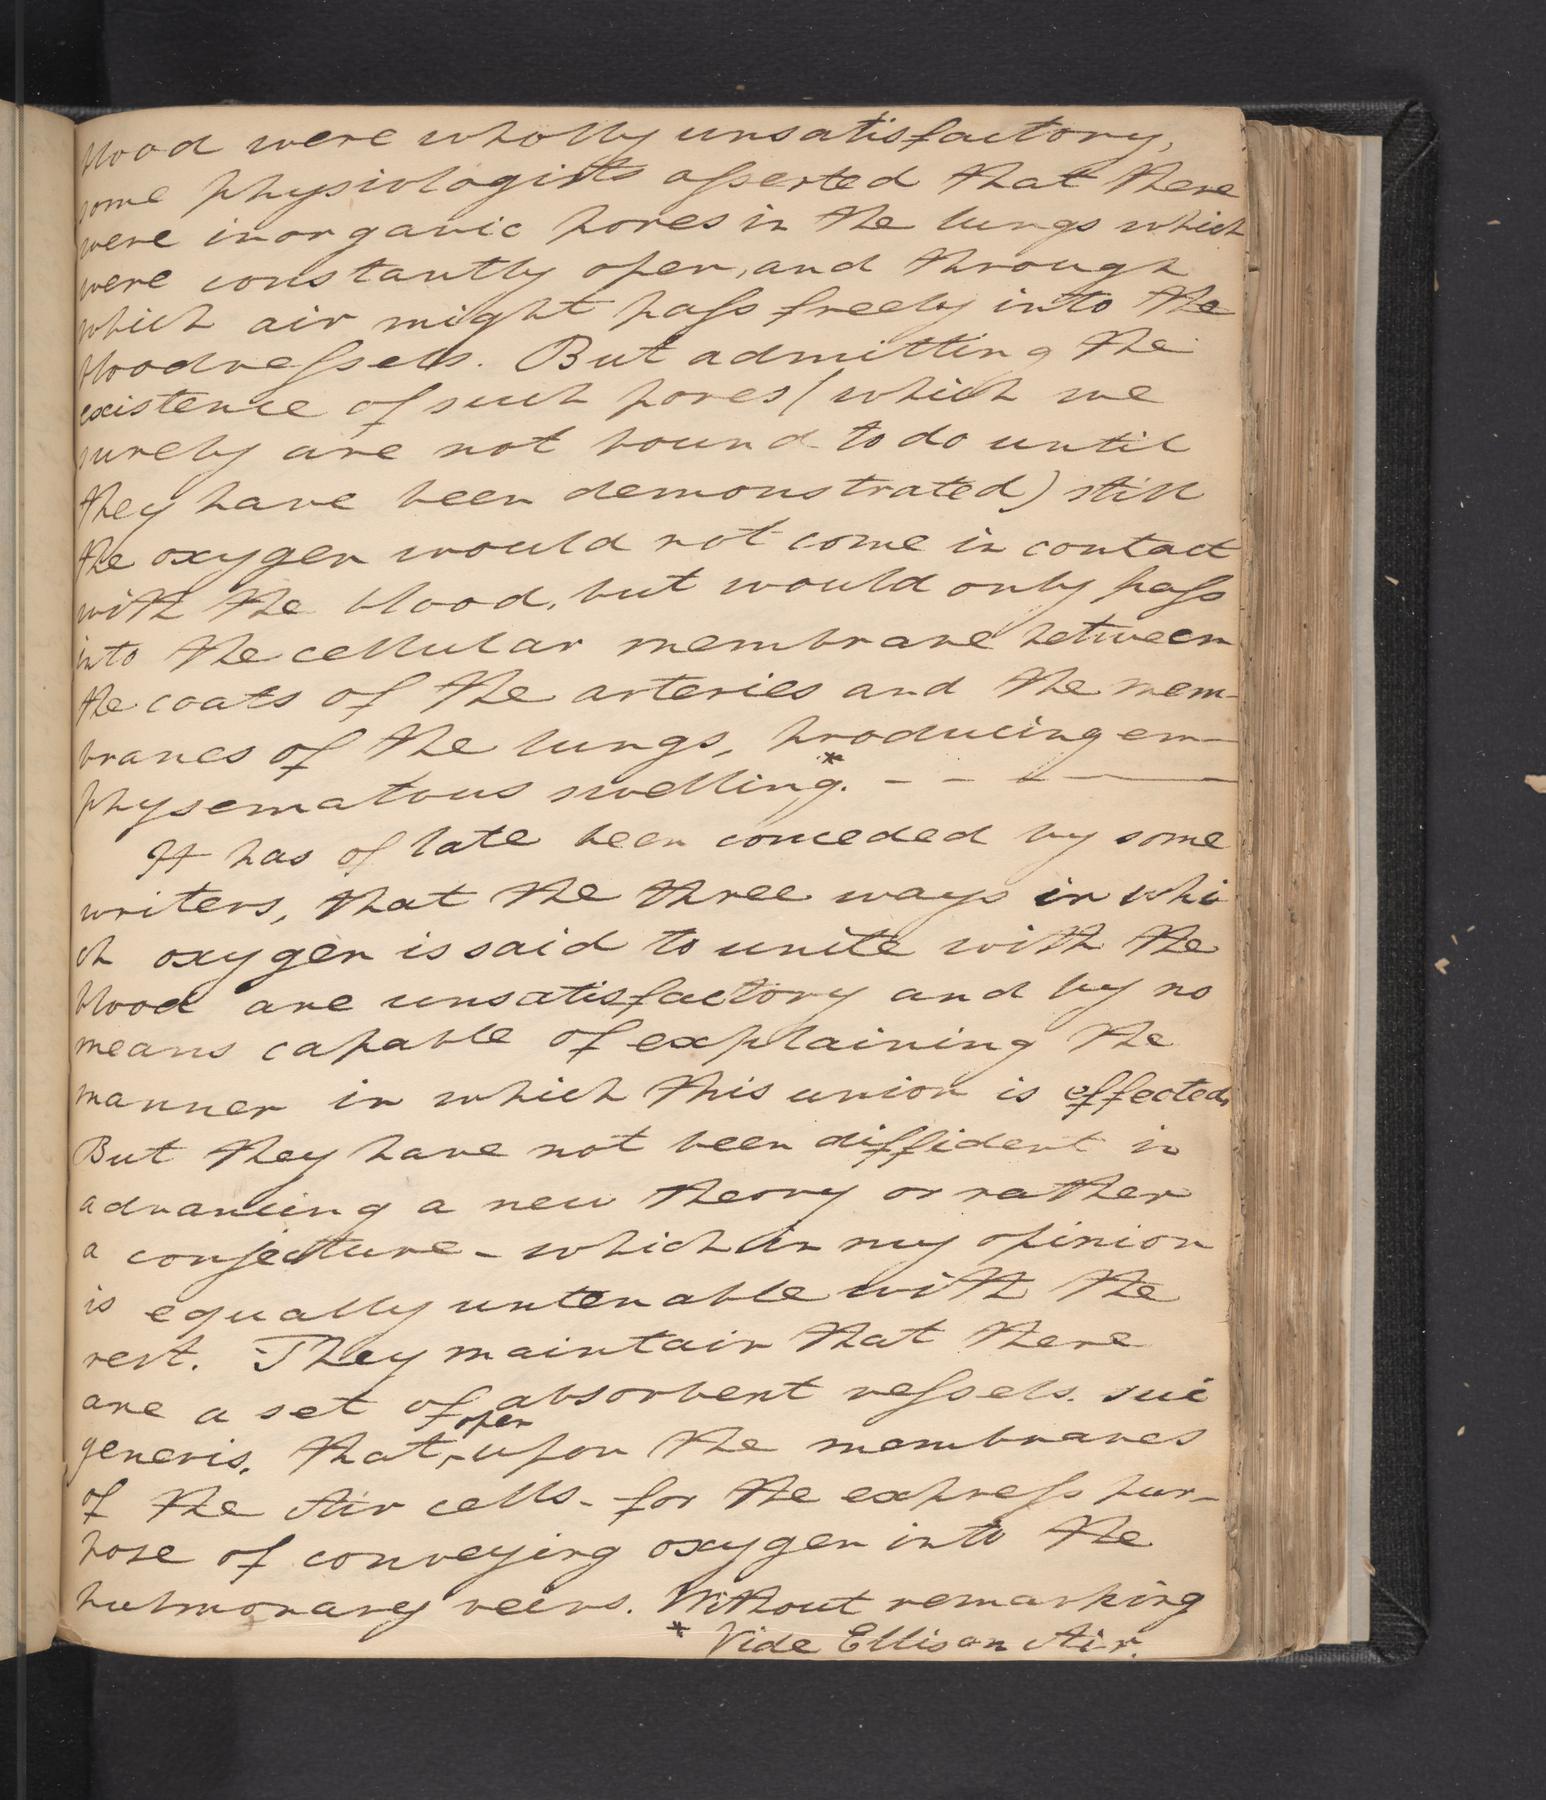 blood were wholly unsatisfactory,
some physiologists aſserted that there
were inorganic pores in the lungs which
were constantly open, and through
which air might paſs freely into the
bloodveſsels. But admitting the
existence of such pores (which we
surely are not bound to do until
they have been demonstrated) still
the oxygen would not come in contact
with the blood, but would only paſs
into the cellular membrane between
the coats of the arteries and the mem-
branes of the lungs, producing em-
physematous swelling.* - - - -
It has of late been conceded by some
writers, that the three ways in whi
ch oxygen is said to unite with the
blood are unsatisfactory and by no
means capable of explaining the
manner in which this union is effected,
But they have not been diffident in
advancing a new theory or rather
a conjecture - which in my opinion
is equally untenable with the
rest. They maintain that there
are a set of absorbent veſsels. sui
generis. that, open upon the membranes
of the Air cells - for the expreſs pur-
pose of conveying oxygen into the
pulmonary veins. Without remarking
* Vide Ellis on Air.